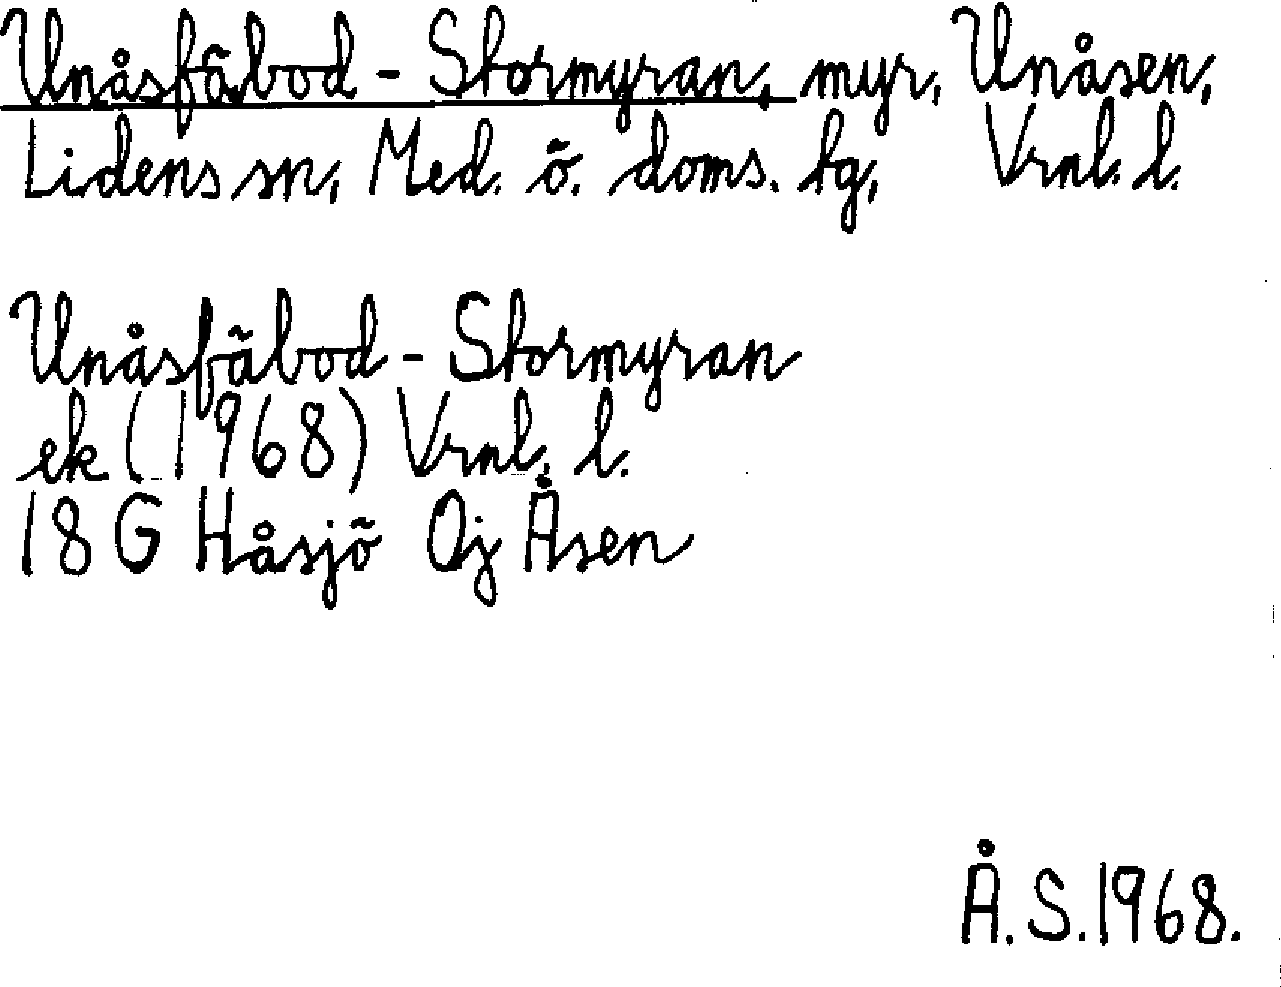 Unåsfäbod - Stormyran, myr, Unåsen,
Lidens sn, Med. ö. doms. tg, Vrnl. l.
Unåsfäbod - Stormyran
ek (1968) Vrnl. l.
18 G Håsjö 0j Åsen
Å. S. 1968.